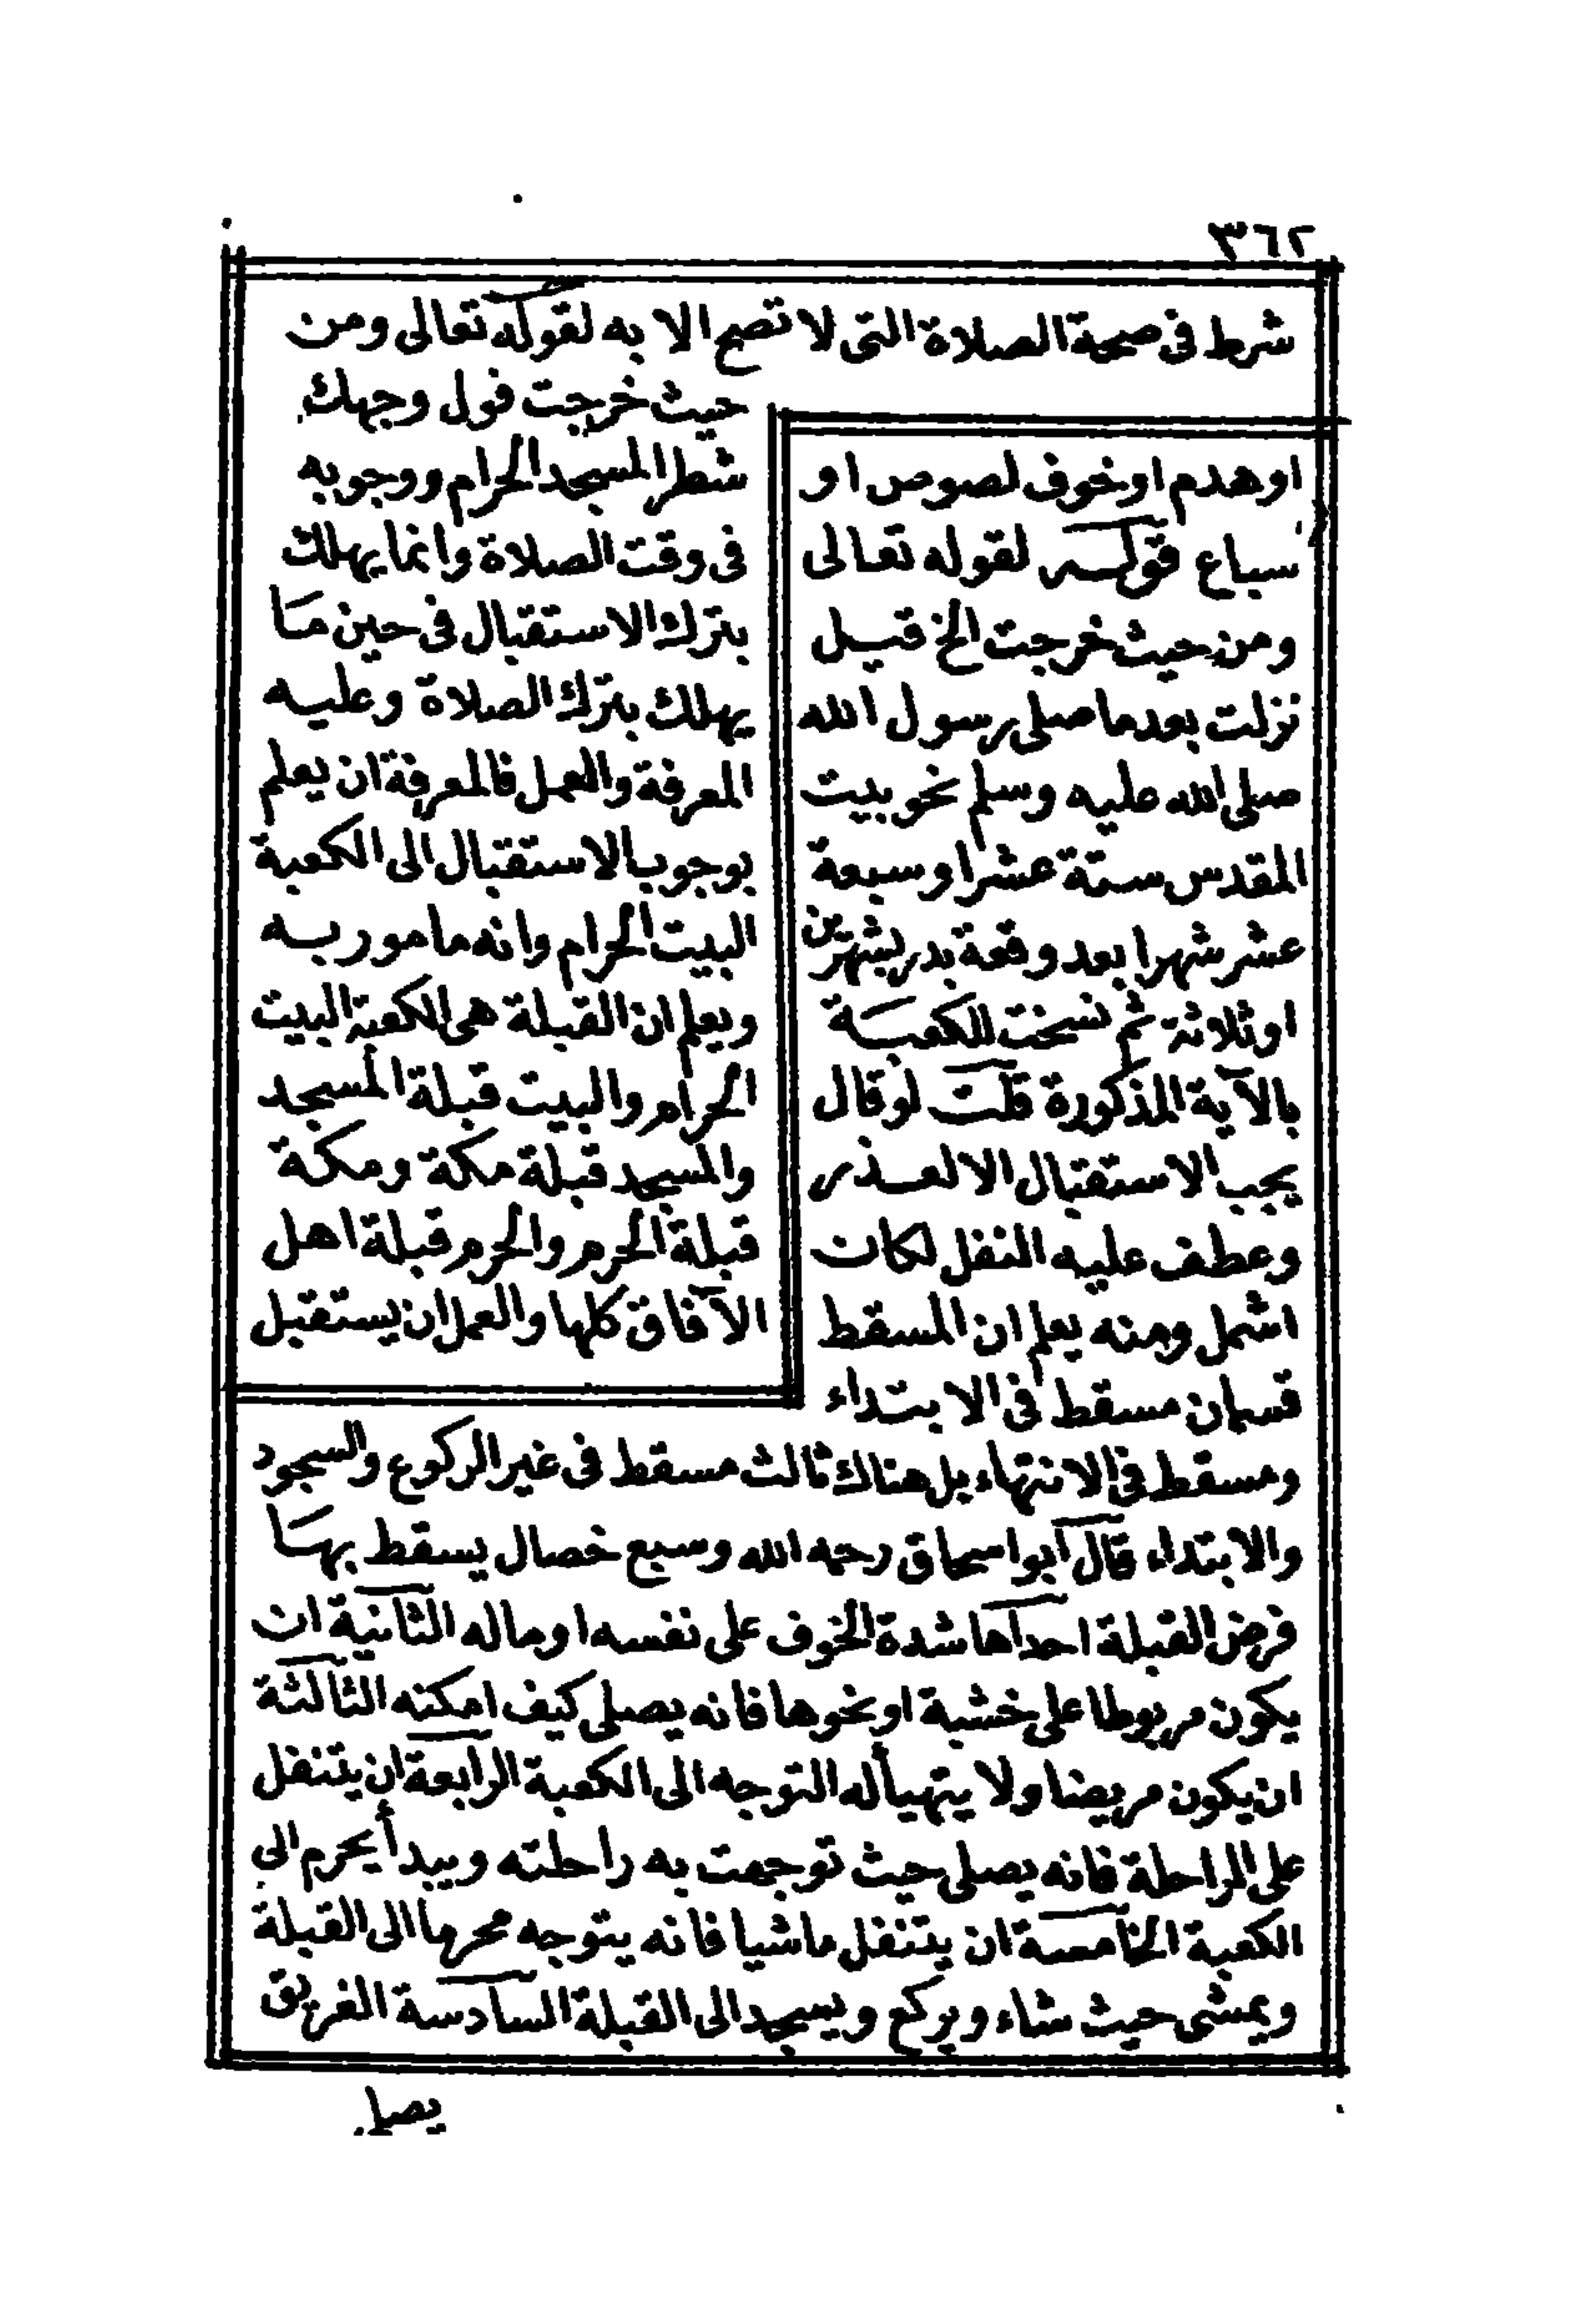 ٣٦٢
شرط فى صحة الصلاة التى لا تصح الا به لقوله تعالى ومن
حيث خرجت فول وجهك
شطر المسجد الحرام ووجوبه
فى وقت الصلاة وانما يهلك
بترك الاستقبال فى حين ما
يهلك بترك الصلاة وعليه
المعرفة والعمل فالمعرفة ان يعلم
بوجوب الاستقبال الى الكعبة
البيت الحرام وانه مامور به
ويعلم ان القبلة هى الكعبة البيت
الحرام والبيت قبلة المسجد
والمسجد قبلة مكة ومكة
قبلة الحرم والحرم قبلة اهل
الآفاق كلها والعمل ان يستقبل
او هدم او خوف لصوص او
سباع قوله لقوله تعالى
ومن حيث خرجت الخ قيل
نزلت بعد ما صلى رسول الله
صلى الله عليه وسلم نحو بيت
المقدس ستة عشر او سبعة
عشر شهرا بعد وقعة بدر بشهرين
او ثلاثة ثم نسخت للكعبة
بالآية المذكورة قلت لو قال
يجب الاستقبال الا لعذر
وعطف عليه النفل لكان
اشمل ومنه يعلم ان المسقط
قسمان مسقط فى الابتداء
ومسقط فى الانتهاء بل هناك ثالث مسقط فى غير الركوع والسجود
والابتداء قال ابو اسحاق رحمه الله وسبع خصال يسقط بها
فرض القبلة احداها شدة الخوف على نفسه او ماله الثانية ان
يكون مربوطا على خشبة او نحوها فانه يصلى كيف امكنه الثالثة
ان يكون مريضا ولا يتهيأ له التوجه الى الكعبة الرابعة ان يتنفل
على الراحلة فانه يصلى حيث توجهت به راحلته ويبدأ يحرم الى
الكعبة الخامسة ان يتنفل ماشيا فانه يتوجه محرما الى القبلة
ويمشى حيث شاء ويركع ويسجد الى القبلة السادسة الغريق
يصلى